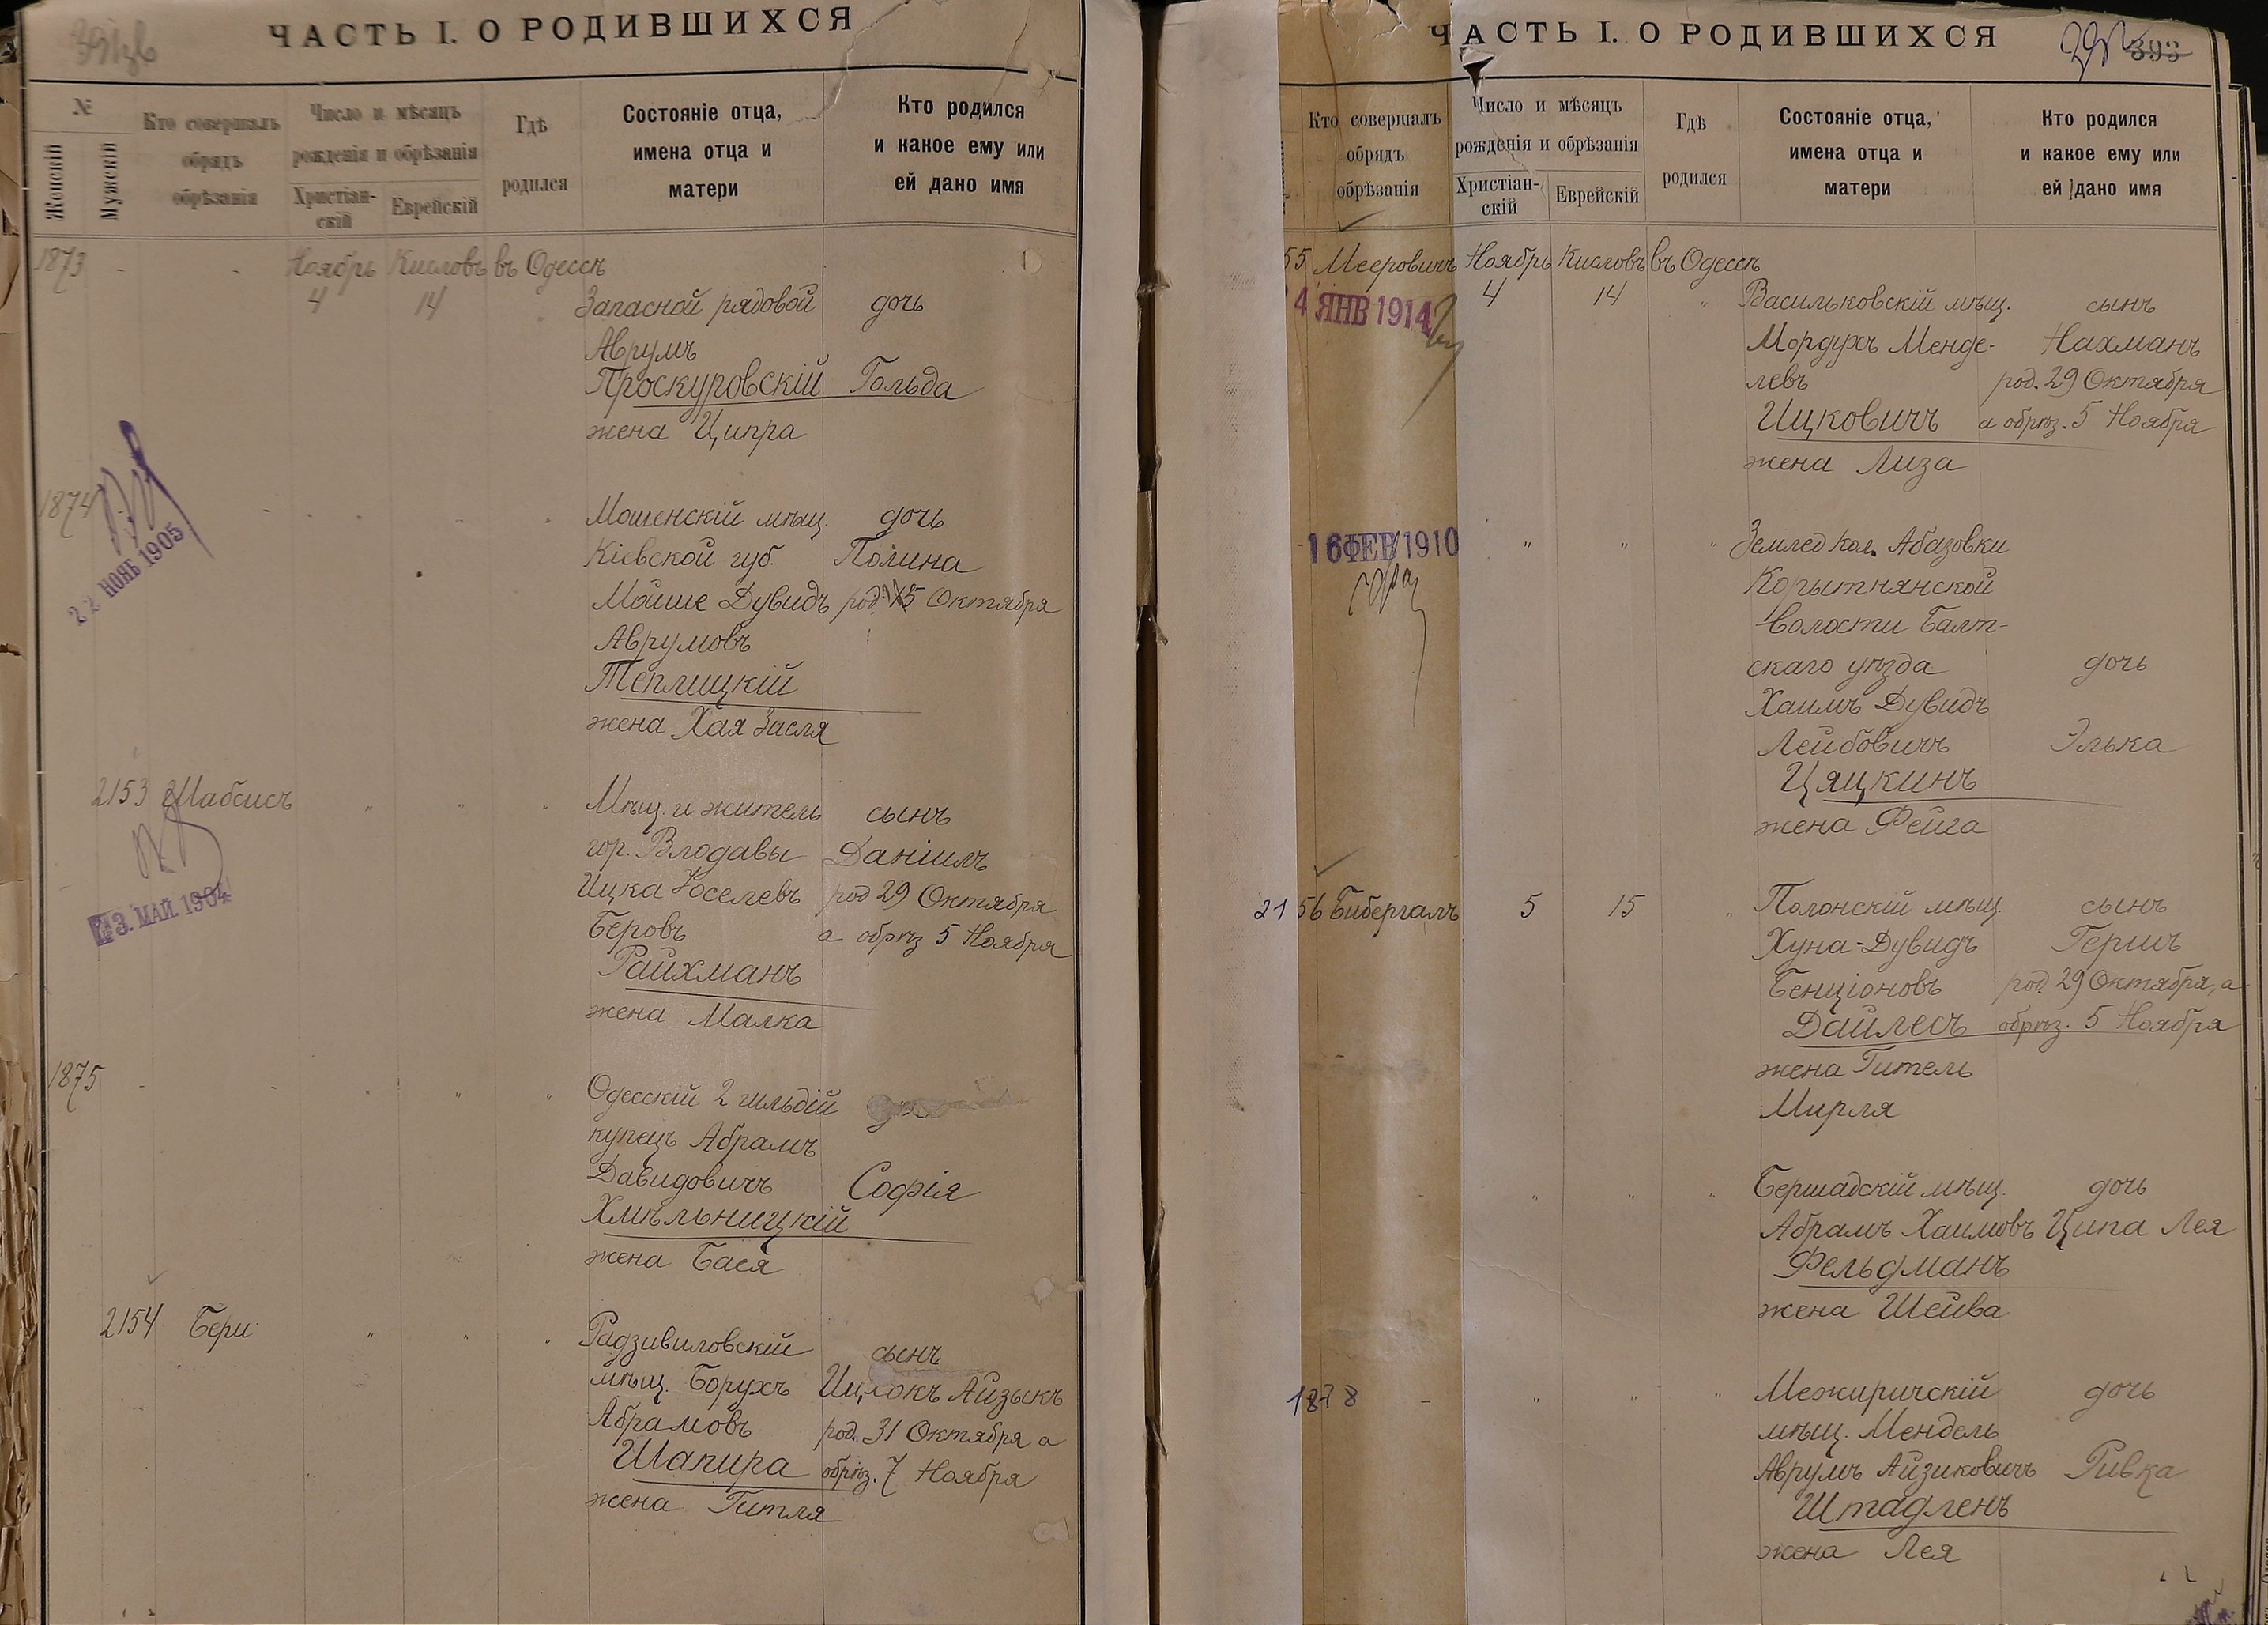 ЧАСТЬ I. О РОДИВШИХСЯ
№
Женскій
Мужскій
Кто совершалъ
обрядъ
обрѣзанія
Число и мѣсяцъ
рожденія и обрѣзанія
Христіан-
скій
Еврейскій
Гдѣ
родился
Состояніе отца,
имена отца и
матери
Кто родился
и какое ему или
ей дано имя
1873 - - Ноябрь Кисловъ въ Одессѣ
4 14 Запасной рядовой дочь
Аврумъ
Проскуровскій Гольда
жена Ципра
1874 - Мошенскій мѣщ. дочь
Кіевской губ. Полина
Мойше Дувидъ род. 15 Октября
Аврумовъ
Теплицкій
жена Хая Зисля
22 НОЯБ 1905
2153 Шабсисъ " " " Мѣщ. и житель сынъ
гор. Влодавы Даніилъ
Ицка Іоселевъ род 29 Октября
Беровъ а обрѣз 5 Ноября
Райхманъ
жена Малка
13. МАЙ. 1904
1875 - - " " " Одесскій 2 гильдій
купецъ Абрамъ
Давидовичъ Софія
Хмѣльницкій
жена Бася
2154 Бери " " " Радзивиловскій сынъ
мѣщ. Борухъ Ицхокъ Айзыкъ
Абрамовъ род. 31 Октября а
Шапира обрѣз. 7 Ноября
жена Гитля
ЧАСТЬ I. О РОДИВШИХСЯ
393
Кто совершалъ
обрядъ
обрѣзанія
Число и мѣсяцъ
рожденія и обрѣзанія
Христіан-
скій
Еврейскій
Гдѣ
родился
Состояніе отца,
имена отца и
матери
Кто родился
и какое ему или
ей дано имя
55 Мееровичъ Ноябрь Кисловъ въ Одессѣ
4 ЯНВ 1914 4 14 " Васильковскій мѣщ. сынъ
Мордухъ Менде- Нахманъ
левъ род. 29 Октября
Ицковичъ а обрѣз. 5 Ноября
жена Лиза
16 ФЕВ 1910 " " " Землед кол. Абазовки
Корытнянской
волости Балт-
скаго уѣзда дочь
Хаимъ Дувидъ
Лейбовичъ Элька
Цяцкинъ
жена Фейга
2156 Бибергалъ 5 15 " Полонскій мѣщ. сынъ
Хуна-Дувидъ Гершъ
Бенціоновъ род. 29 Октября, а
Дайлесъ обрѣз. 5 Ноября
жена Гитель
Мирля
" " " Бершадскій мѣщ. дочь
Абрамъ Хаимовъ Ципа Лея
Фельдманъ
жена Шейва
1878 - " " " Межиричскій дочь
мѣщ. Мендель
Аврумъ Айзиковичъ Ривка
Штадленъ
жена Лея